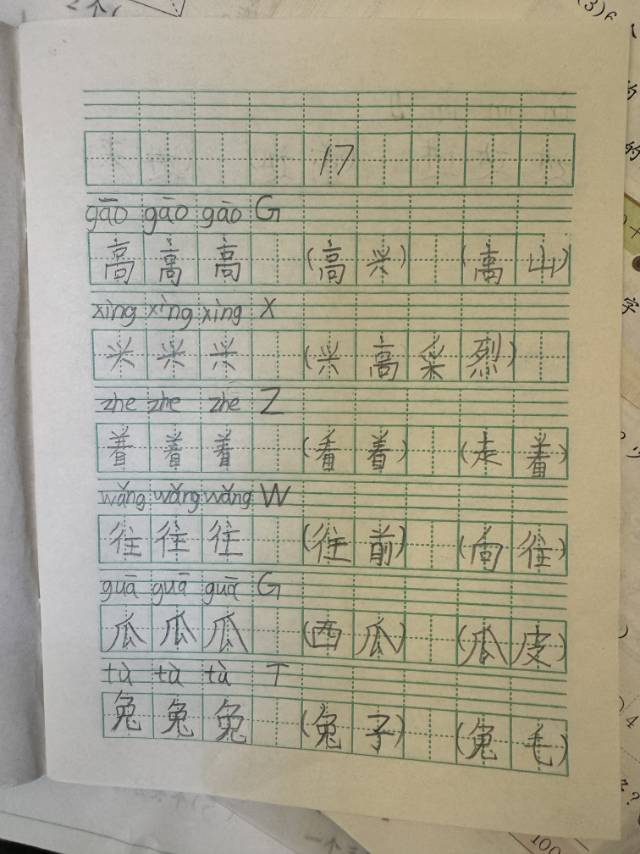 17
gāo gāo gāo G
高 高 高 (高 兴) (高 山)
xìng xìng xìng X
兴 兴 兴 (兴 高 采 烈)
zhe zhe zhe Z
着 着 着 (看 着) (走 着)
wǎng wǎng wǎng W
往 往 往 (往 前) (向 往)
guā guā guā G
瓜 瓜 瓜 (西 瓜) (瓜 皮)
tù tù tù T
兔 兔 兔 (兔 子) (兔 毛)
(3)
的
字
100